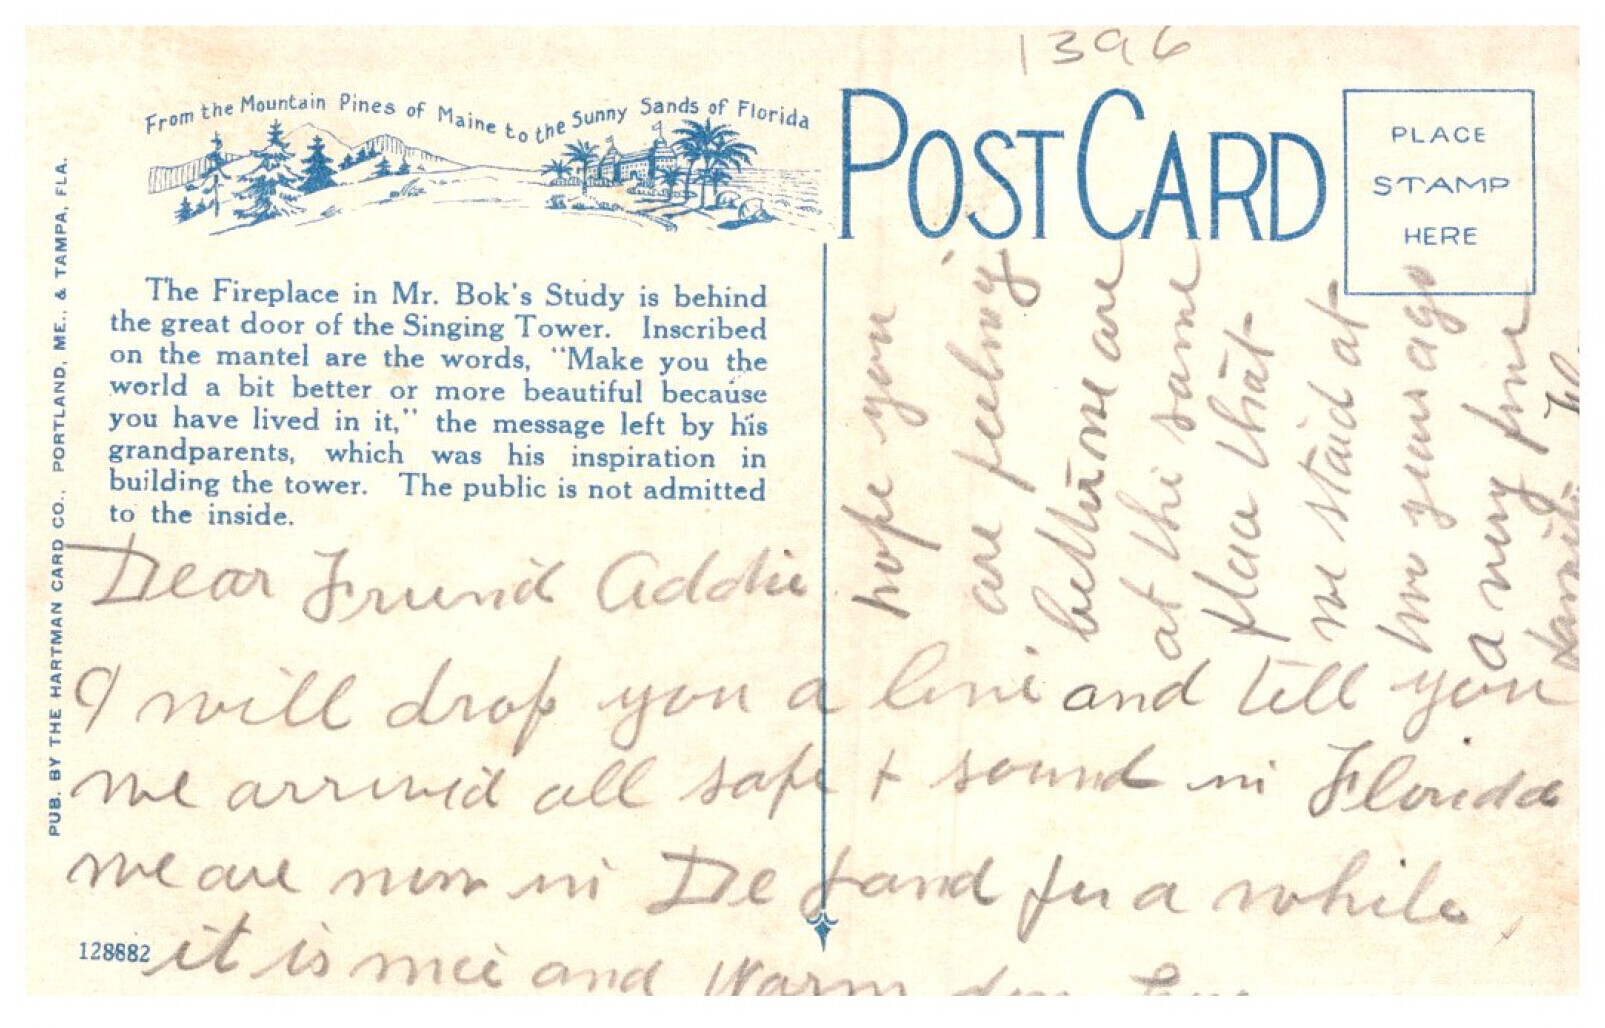 1396
From the Mountain Pines of Maine to the Sunny Sands of Florida
POST CARD
PLACE
STAMP
HERE
PUB. BY THE HARTMAN CARD CO., PORTLAND, ME., & TAMPA, FLA.
The Fireplace in Mr. Bok's Study is behind
the great door of the Singing Tower. Inscribed
on the mantel are the words, "Make you the
world a bit better or more beautiful because
you have lived in it," the message left by his
grandparents, which was his inspiration in
building the tower. The public is not admitted
to the inside.
Dear Friend Addie
I will drop you a line and tell you
we arrived all safe + sound in Florida
we are now in De Land for a while
it is nice and Warm
128882
hope you
are feeling
better we are
at the same
place that
we staid at
two years ago
a very fine